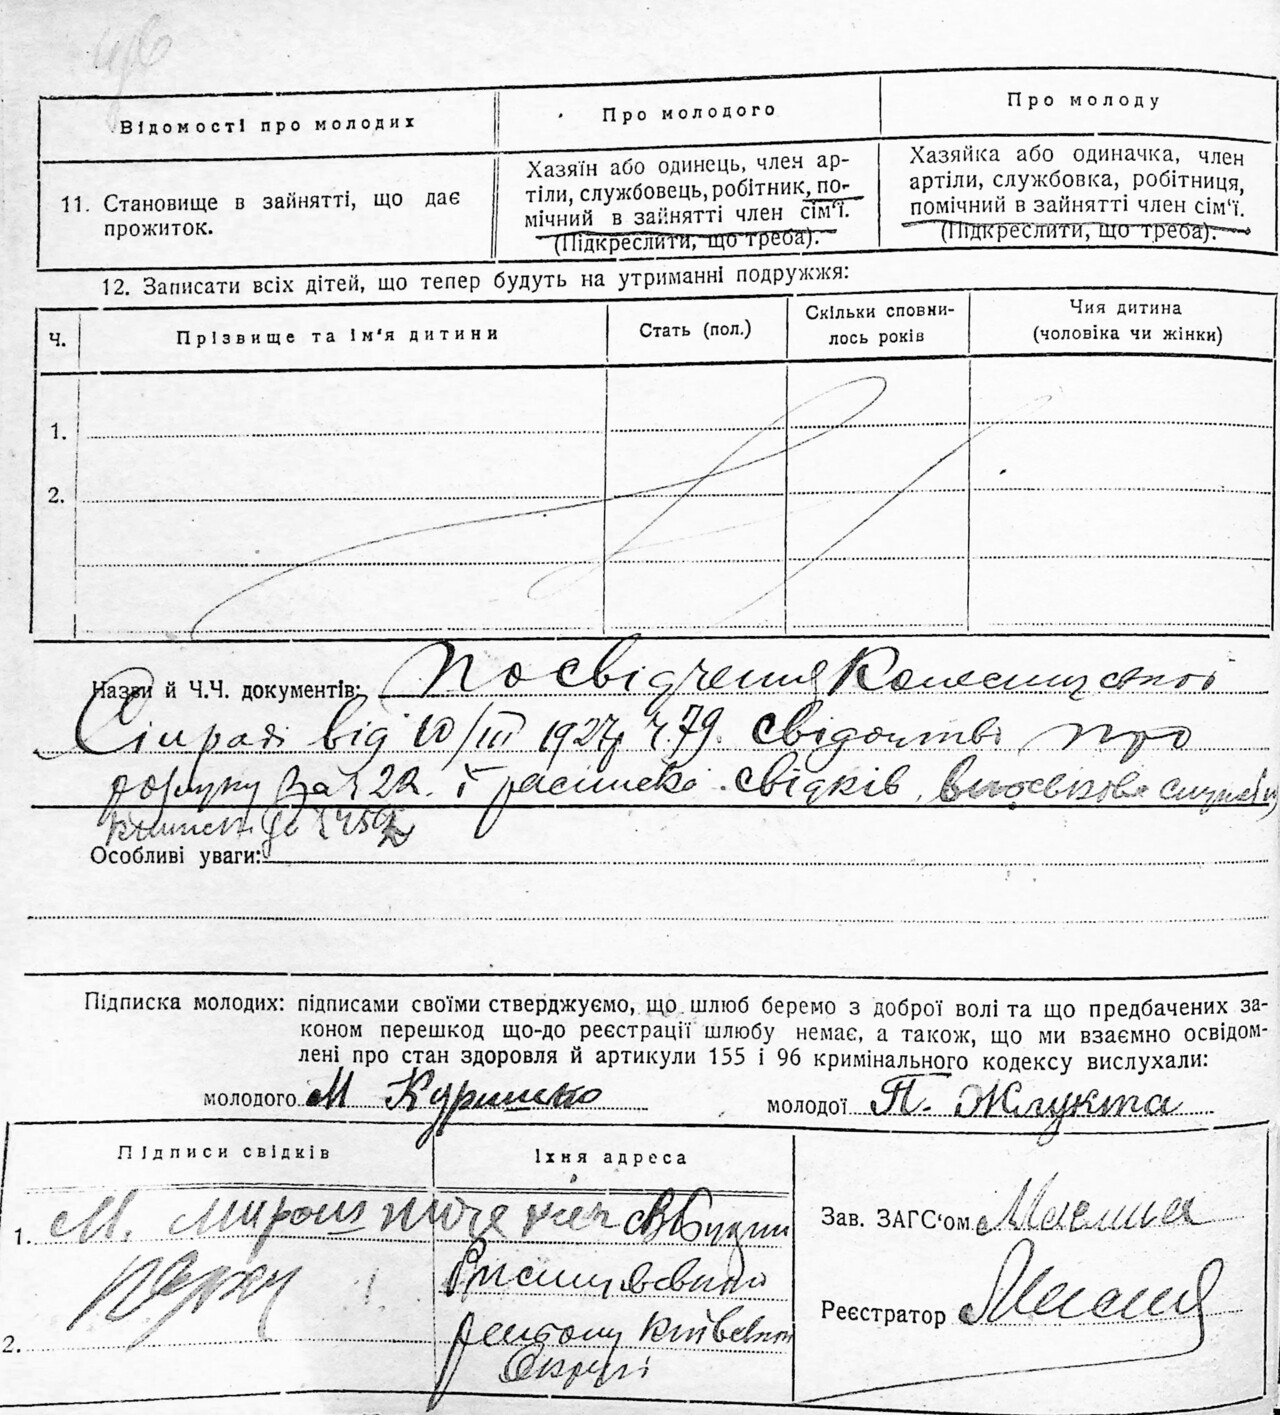 Відомості про молодих
Про молодого
Про молоду
11. Становище в зайнятті, що дає
прожиток.
Хазяїн або одинець, член ар-
тіли, службовець, робітник, по-
мічний в зайнятті член сім'ї.
(Підкреслити, що треба).
Хазяйка або одиначка, член
артіли, службовка, робітниця,
помічний в зайнятті член сім'ї.
(Підкреслити, що треба).
12. Записати всіх дітей, що тепер будуть на утриманні подружжя:
Ч.
Прізвище та ім'я дитини
Стать (пол.)
Скільки сповни-
лось років
Чия дитина
(чоловіка чи жінки)
1.
2.
Назви й Ч.Ч. документів: Посвідчення
Сільради від 10/III 1927р ч. 79. свідоцтво про
за ч 22. і расписка свідків,
Особливі уваги:
Підписка молодих: підписами своїми стверджуємо, що шлюб беремо з доброї волі та що предбачених за-
коном перешкод що-до реєстрації шлюбу немає, а також, що ми взаємно освідом-
лені про стан здоровля й артикули 155 і 96 кримінального кодексу вислухали:
молодого М Куришко
молодої П. Жлукта
Підписи свідків
Їхня адреса
1. М.
району Київської
Округи
2.
Зав. ЗАГС'ом
Реєстратор